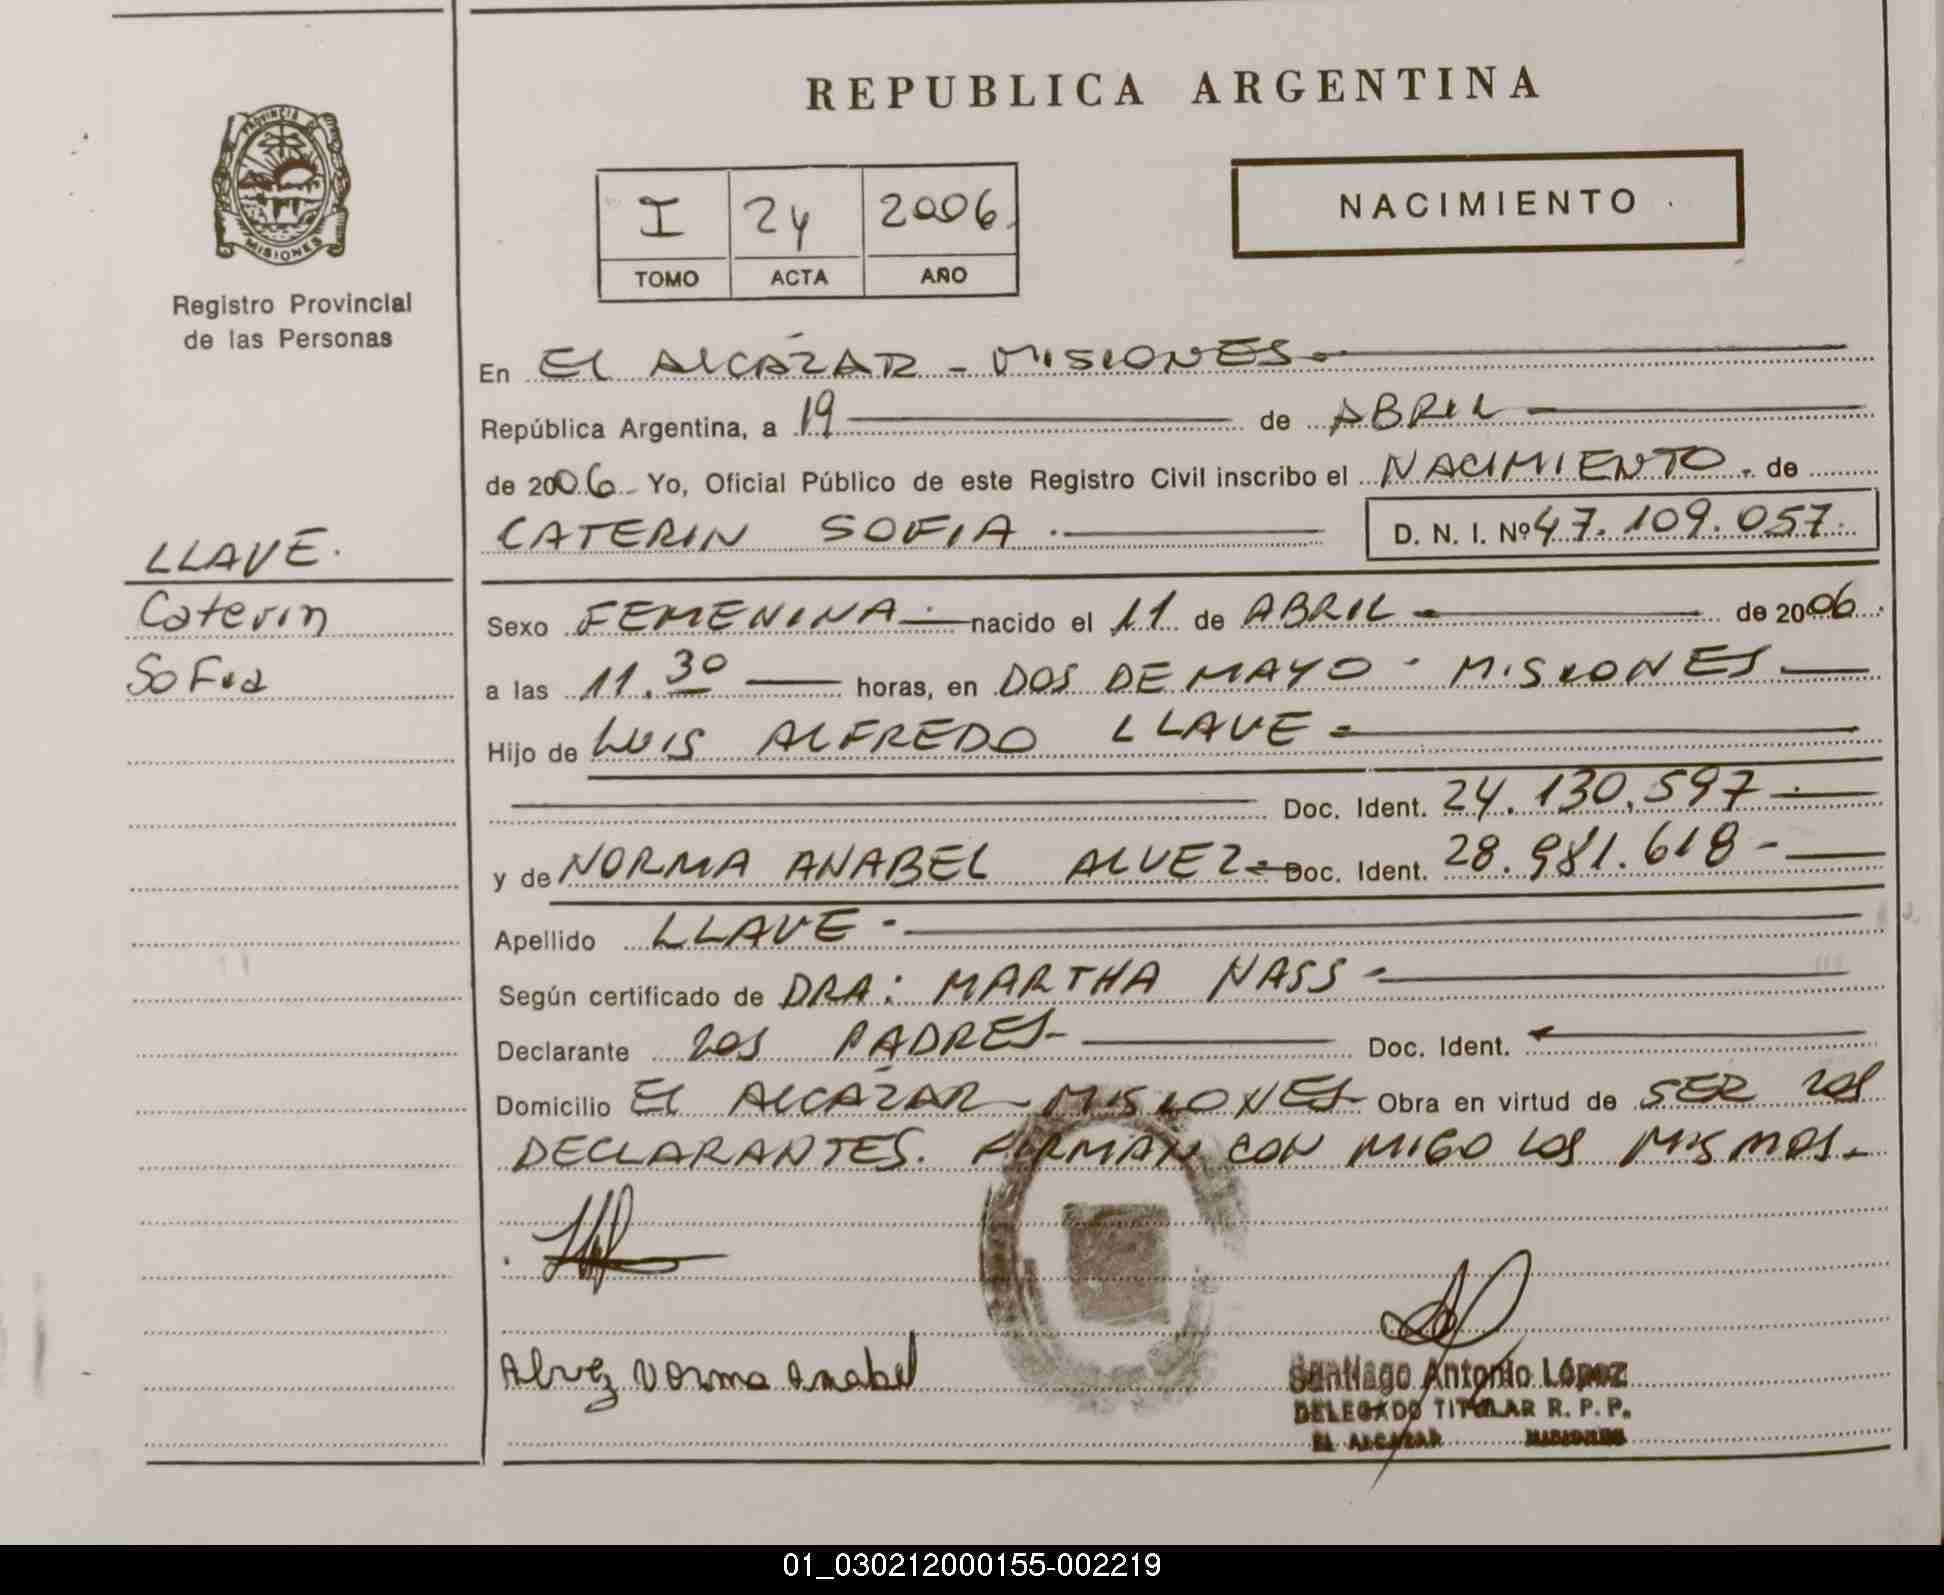 REPUBLICA ARGENTINA
PROVINCIA DE
MISIONES
Registro Provincial
de las Personas
I 24 2006
TOMO ACTA AÑO
NACIMIENTO
En EL ALCÁZAR - MISIONES
República Argentina, a 19 de ABRIL
de 2006 Yo, Oficial Público de este Registro Civil inscribo el NACIMIENTO. de
CATERIN SOFIA D. N. I. Nº 47.109.057
LLAVE.
Caterin
Sofia
Sexo FEMENINA nacido el 11 de ABRIL de 2006
a las 11.30 horas, en DOS DE MAYO - MISIONES
Hijo de LUIS ALFREDO LLAVE
Doc. Ident. 24.130.597
y de NORMA ANABEL ALVEZ Doc. Ident. 28.981.618
Apellido LLAVE
Según certificado de DRA: MARTHA NASS
Declarante LOS PADRES Doc. Ident.
Domicilio EL ALCÁZAR - MISIONES Obra en virtud de SER LOS
DECLARANTES. FIRMAN CON MIGO LOS MISMOS.
Alvez Norma Anabel
Santiago Antonio López
DELEGADO TITULAR R. P. P.
EL ALCAZAR MISIONES
01_030212000155-002219